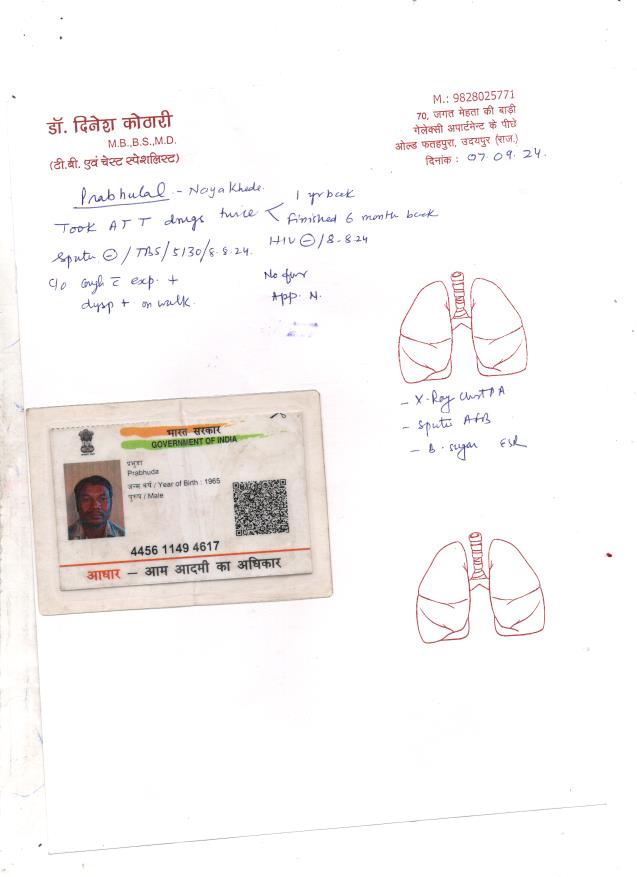 डॉ. दिनेश कोठारी
M.B.,B.S.,M.D.
(टी.बी. एवं चेस्ट स्पेशलिस्ट)
M.: 9828025771
70, जगत मेहता की बाड़ी
गेलेक्सी अपार्टमेन्ट के पीछे
ओल्ड फतहपुरा, उदयपुर (राज.)
दिनांक : 07.09.24.
Prabhulal - Nayakheda.
Took ATT drugs twice < 1 yr back
Finished 6 month back
Sputu ⊖ / TBS/5130/8.8.24. HIV ⊖/8-8-24
C/o Cough c̅ exp. +
dysp + on walk.
No fever
App. N.
- X-Ray Chest PA
- Sputu AFB
- B. sugar ESR
भारत सरकार
GOVERNMENT OF INDIA
प्रभुडा
Prabhuda
जन्म वर्ष / Year of Birth : 1965
पुरुष / Male
4456 1149 4617
आधार – आम आदमी का अधिकार